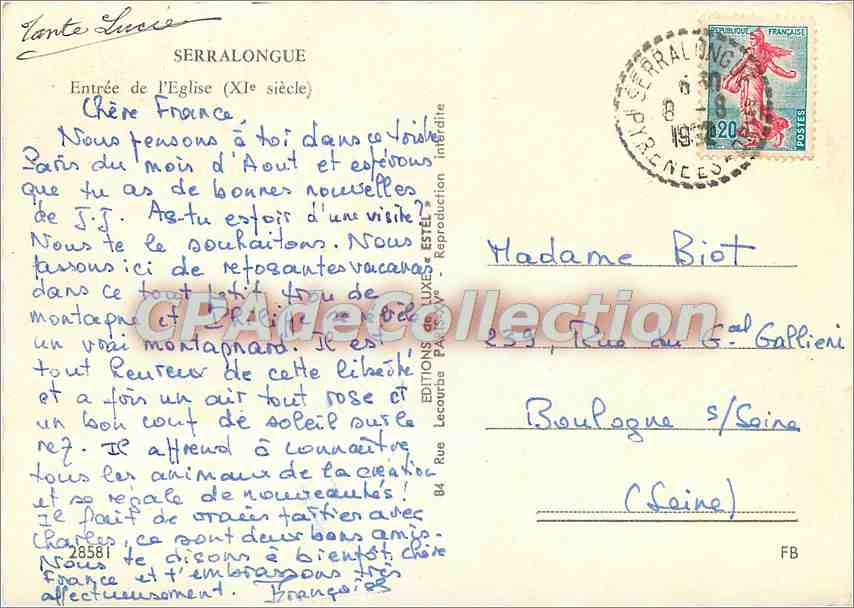 Tante Lucie
SERRALONGUE
Entrée de l'Eglise (XIe siècle)
Chère France,
Nous pensons à toi dans ce triste
Paris du mois d'Aout et espérons
que tu as de bonnes nouvelles
de J.J. As-tu espoir d'une visite?
Nous te le souhaitons. Nous
passons ici de reposantes vacances
dans ce tout petit trou de
montagne et Philippe semble
un vrai montagnard. Il est
tout heureux de cette liberté
et a pris un air tout rose et
un bon coup de soleil sur le
nez. Il apprend à connaître
tous les animaux de la création
et se régale de nouveautés!
Il fait de vraies parties avec
Charles, ce sont deux bons amis.
Nous te disons à bientôt chère
France et t'embrassons très
affectueusement. Françoise
28581
84 Rue Lecourbe PARIS-XVe - Reproduction interdite
EDITIONS de LUXE « ESTEL »
REPUBLIQUE FRANÇAISE
0,20
POSTES
SERRALONGUE
6 30
8 - 8
19
PYRENEES-ORles
Madame Biot
239, Rue du Gal Gallieni
Boulogne s/Seine
(Seine)
FB
CPAdeCollection